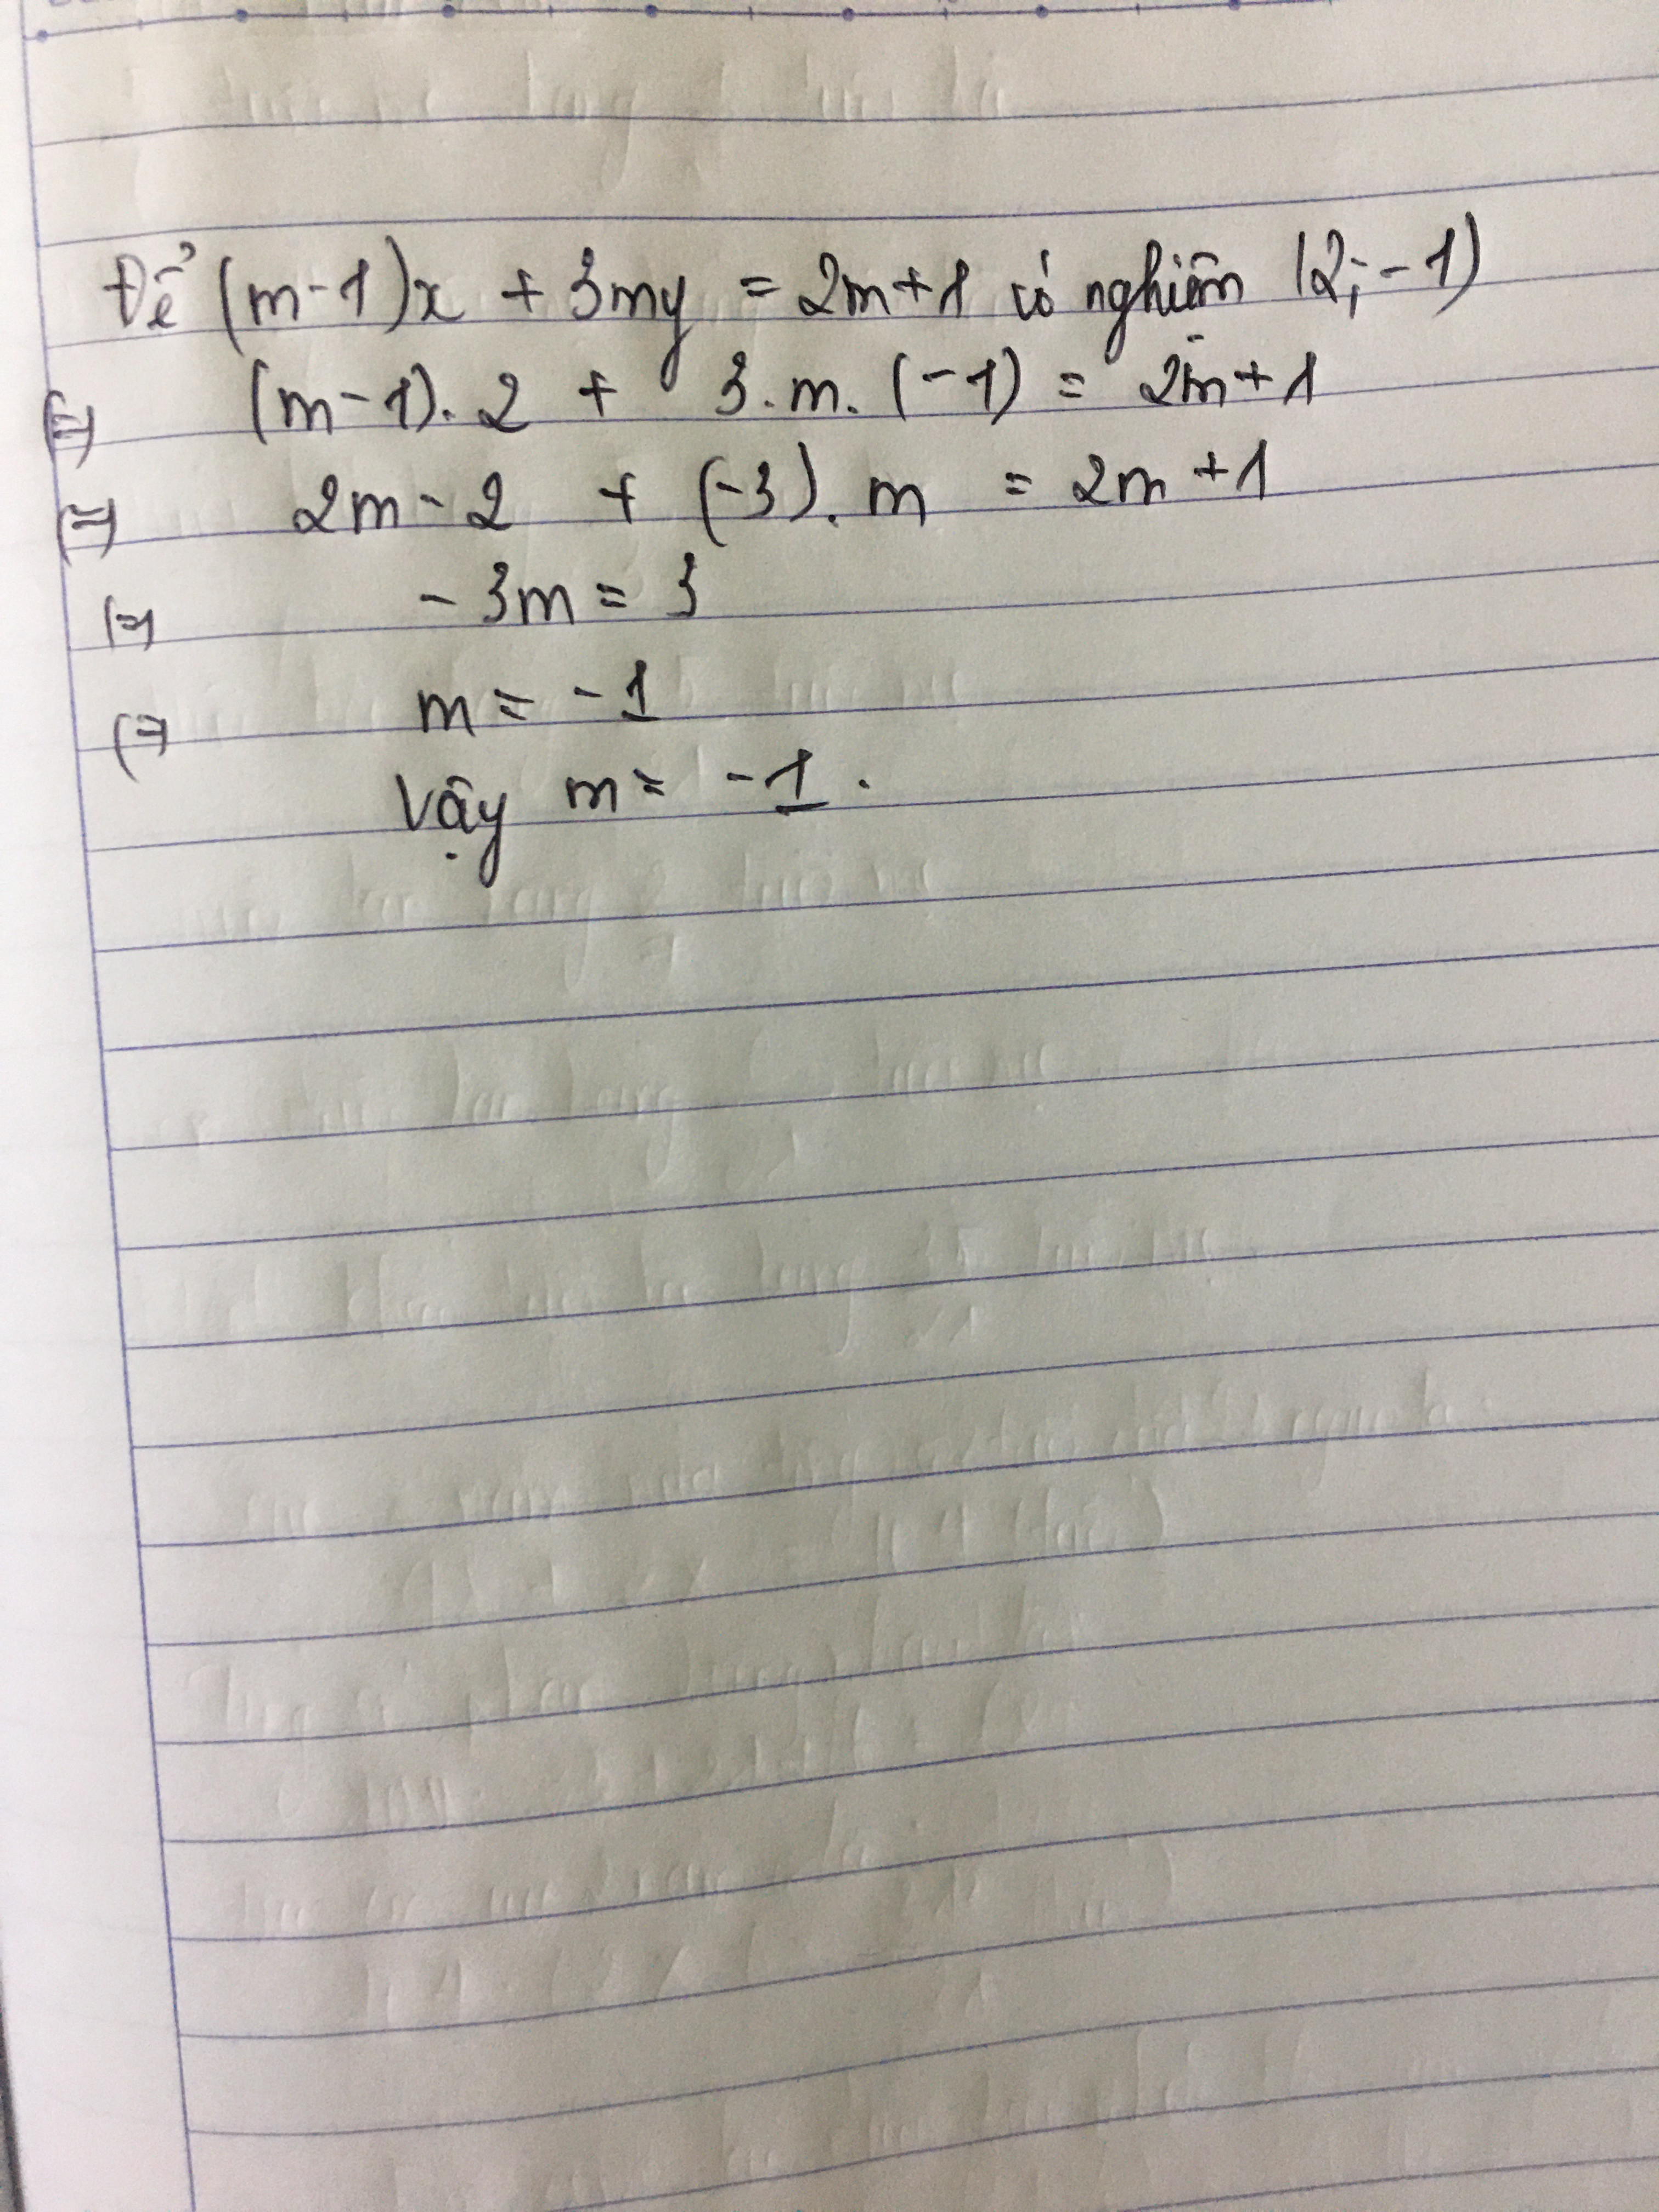 Để (m-1)x + 3my = 2m+1 có nghiệm (2;-1)
(=) (m-1).2 + 3.m.(-1) = 2m+1
(=) 2m-2 + (-3).m = 2m+1
(=) -3m = 3
(=) m = -1
Vậy m = -1.